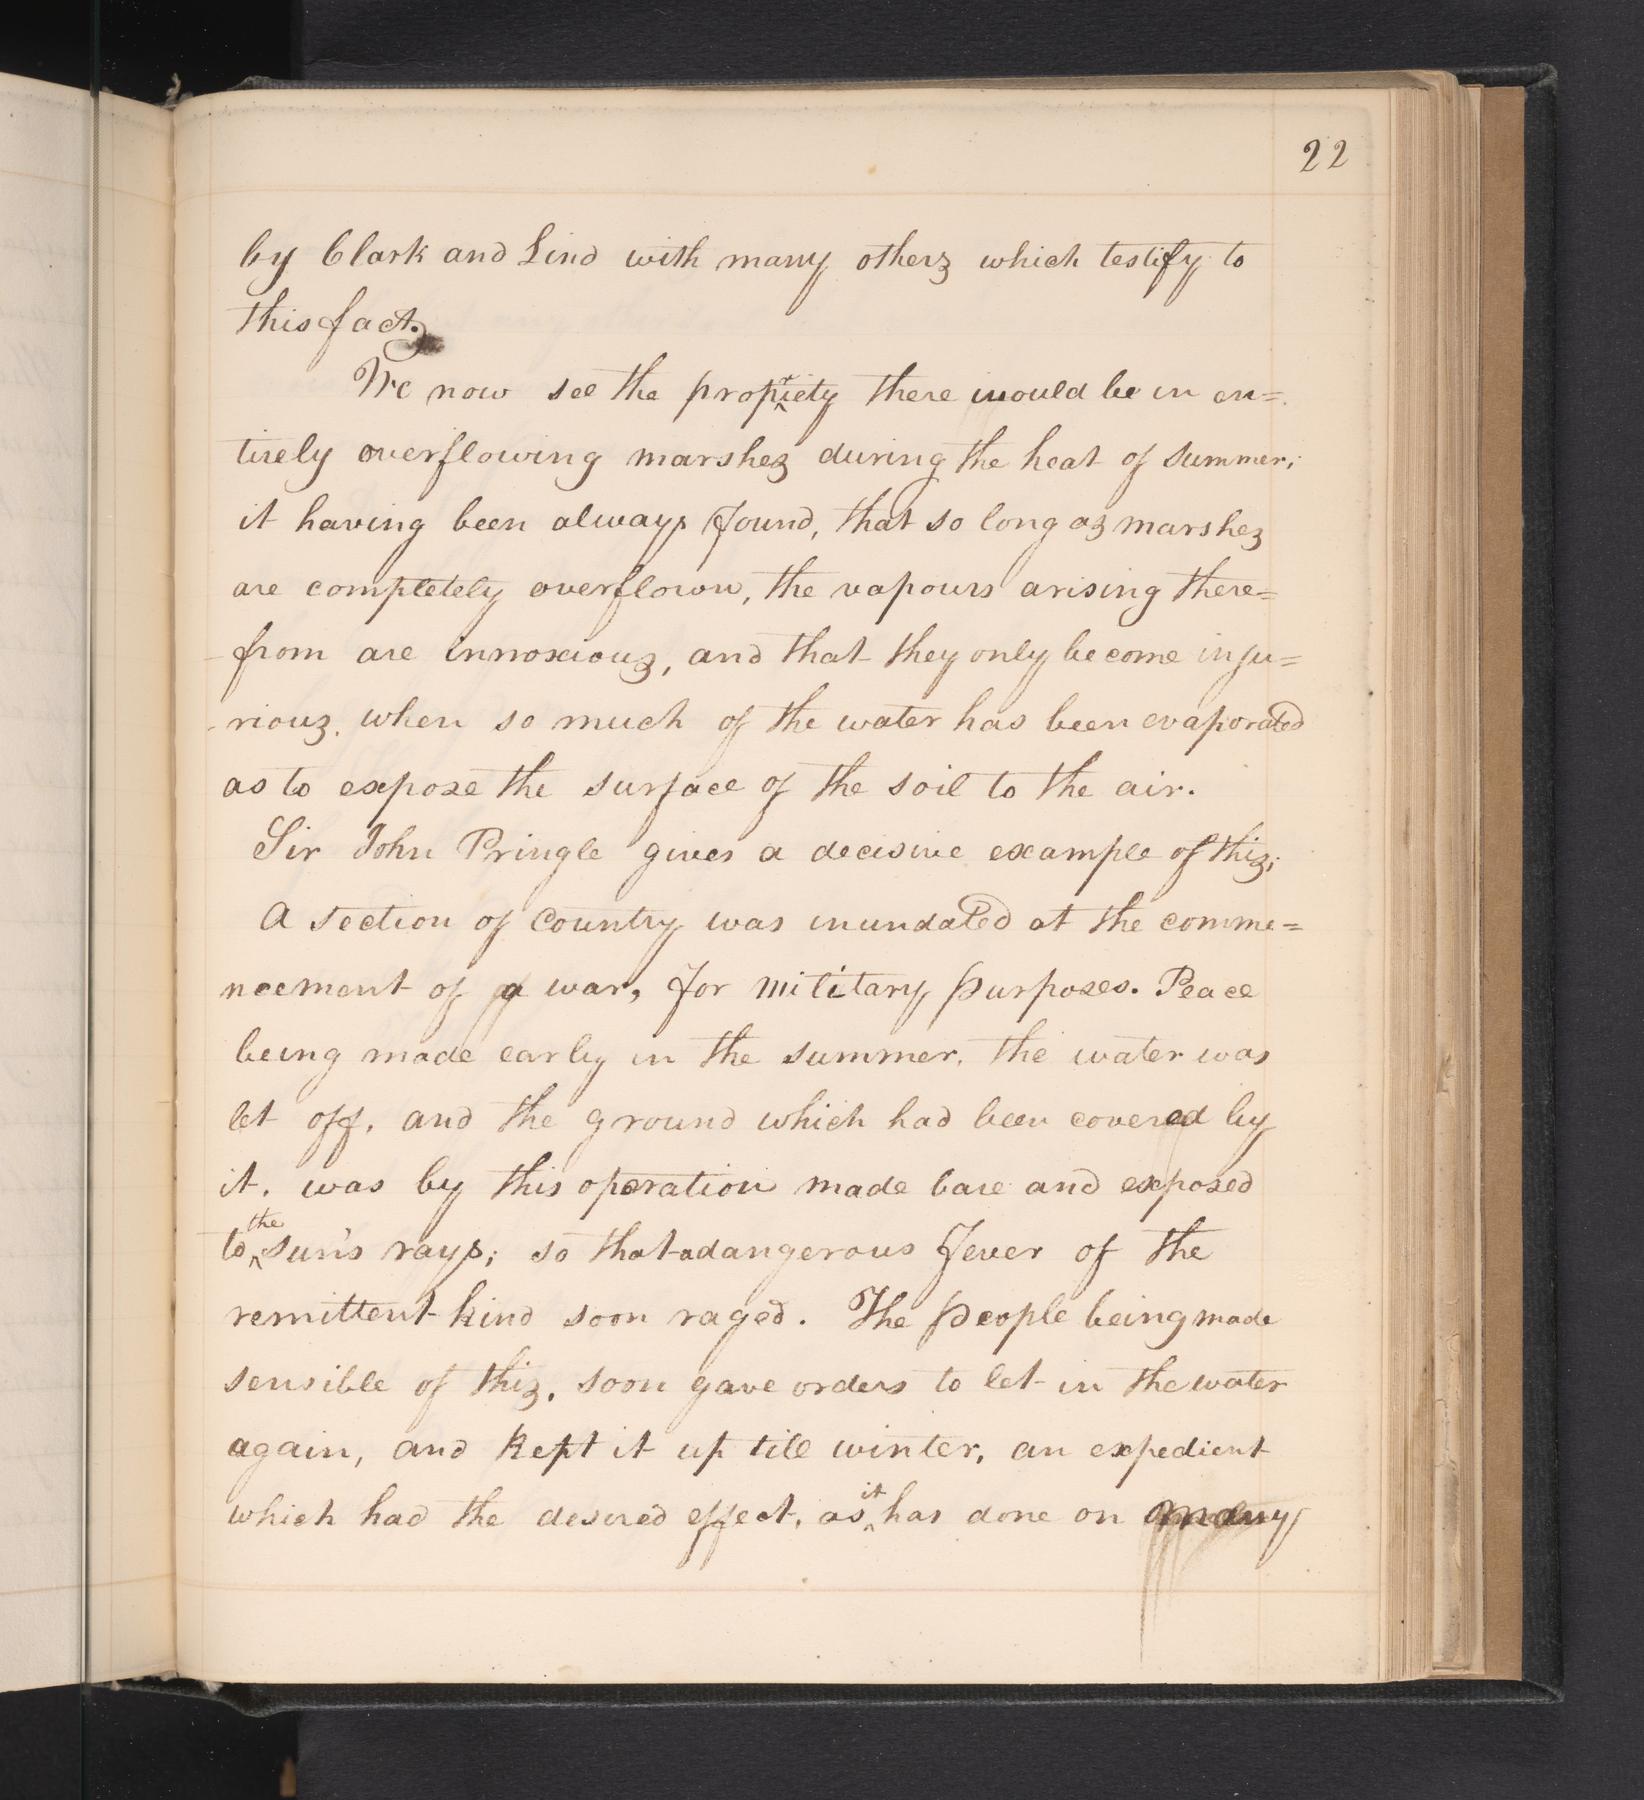 22
by Clark and Lind with many others which testify to
this fact.
We now see the propriety there would be in en=
tirely overflowing marshes during the heat of summer;
it having been always found, that so long as marshes
are completely overflown, the vapours arising there=
from are innoxious, and that they only become inju=
rious, when so much of the water has been evaporated
as to expose the surface of the soil to the air.
Sir John Pringle gives a decisive example of this;
A section of country was inundated at the comme=
ncement of a war, for military purposes. Peace
being made early in the summer, the water was
let off, and the ground which had been covered by
it, was by this operation made bare and exposed
to the sun's rays; so that a dangerous fever of the
remittent kind soon raged. The people being made
sensible of this, soon gave orders to let in the water
again, and kept it up till winter, an expedient
which had the desired effect, as it has done on many